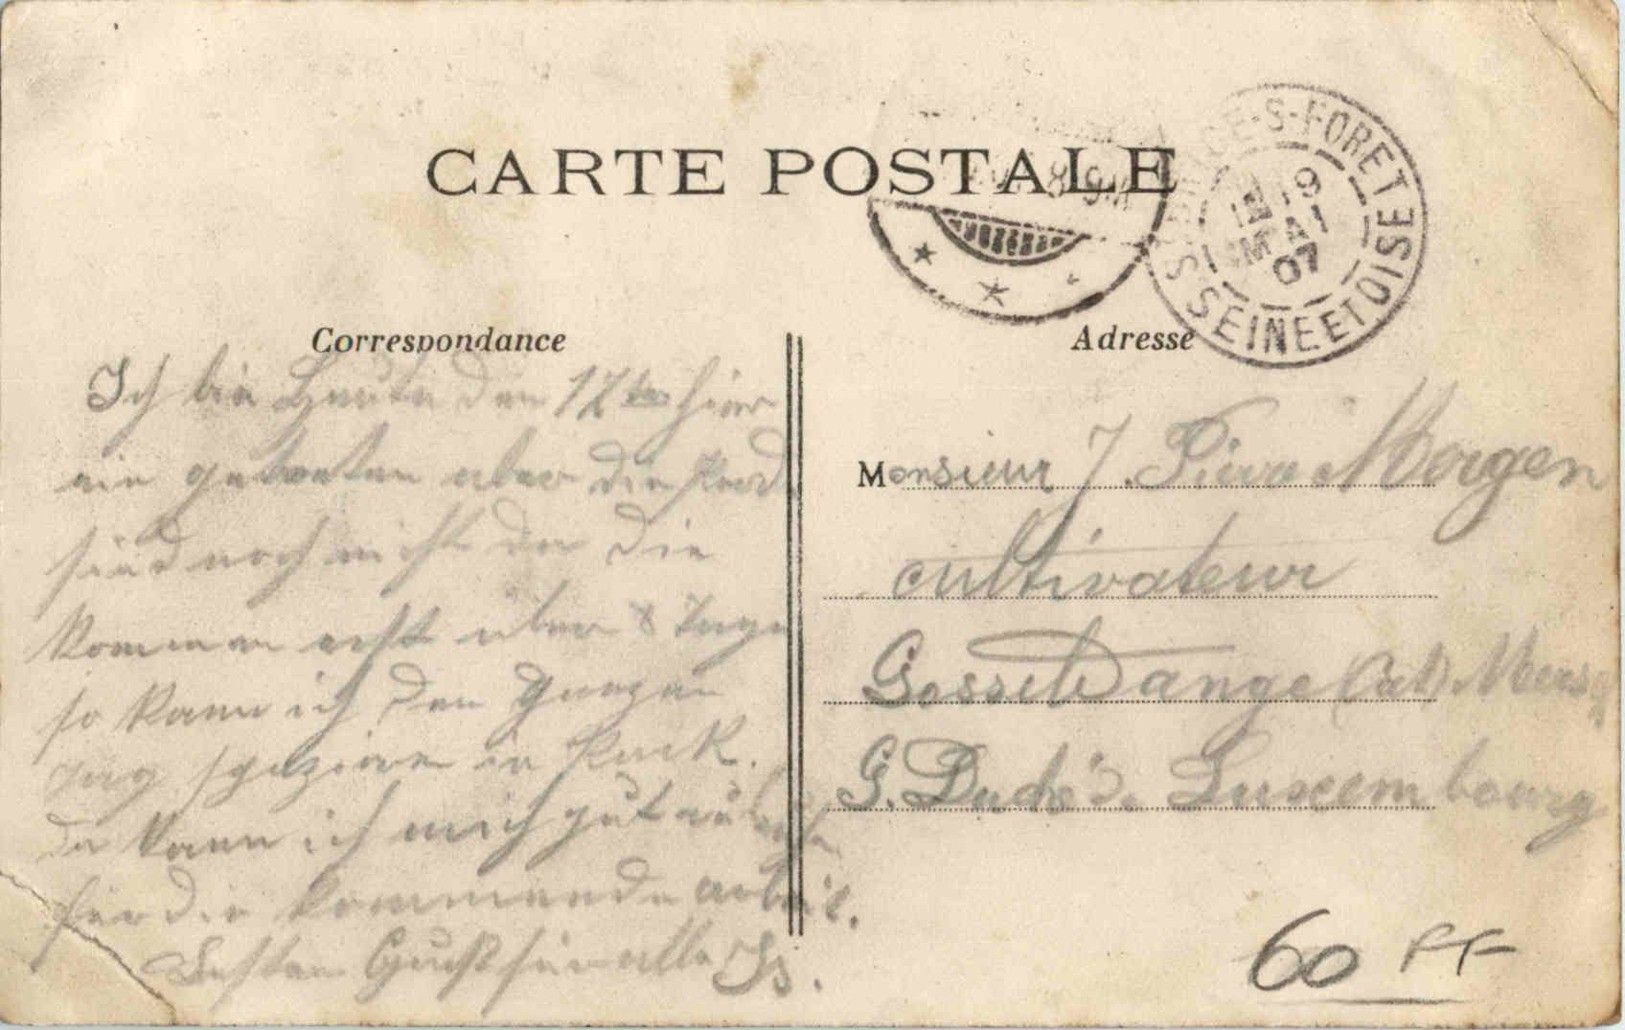 CARTE POSTALE
S-FORET
SEINE ET OISE
19
MAI
07
Correspondance
Adresse
Ich bin Heute den 17ten hier
ein getreten aber die Pferd
sind noch nicht da die
kommen erst über 8 Tage
so kann ich den ganzen
Tag spaziren in Park.
da kann ich mich gut
für die kommende arbeit.
Besten Gruß für alle Js.
Monsieur J. Morgen
cultivateur
Gosseldange (Cat) Mersch
G. Duché d. Luxembourg
60 FF